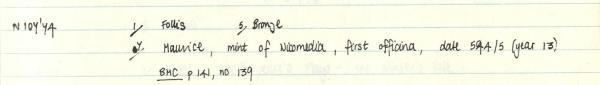 N 104'74 1/ Follis 3. Bronze
4/ Maurice, mint of Nicomedia, first officina, date 594/5 (year 13)
BMC p 141, no 139